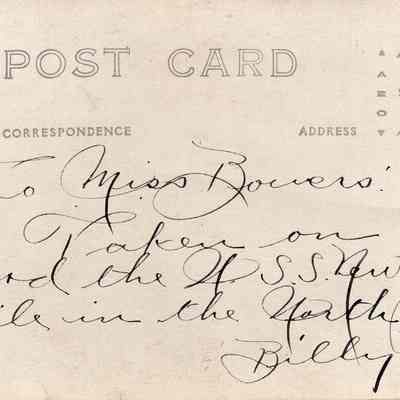 POST CARD
CORRESPONDENCE ADDRESS
To Miss Bowers.
Taken on
the U.S.S. New
in the North
Billy